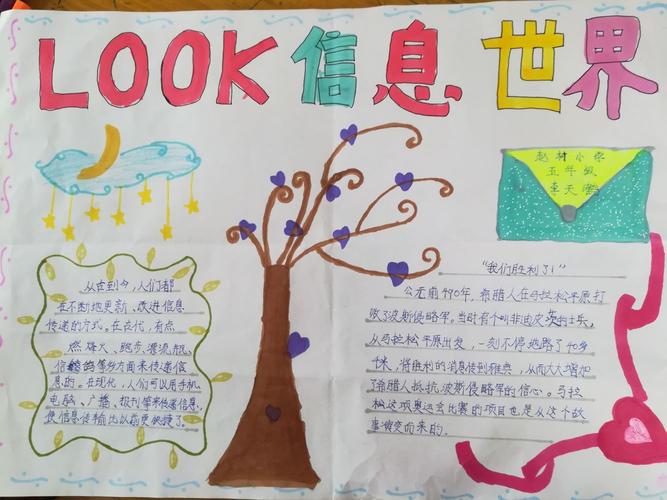 LOOK信息世界
赵村小学
五年级
李天
从古到今,人们都
在不断地更新、改进信息
传递的方式。在古代,有点
燃烽火、跑步、漂流瓶、
信鸽等多方面来传递信
息的。在现代,人们可以用手机、
电脑、广播、报刊等来传递信息,
使信息传输比以前更快捷了。
"我们胜利了!"
公元前490年,希腊人在马拉松平原打
败了波斯侵略军。当时有个叫非迪皮茨的士兵,
从马拉松平原出发,一刻不停地跑了40多
千米,将胜利的消息传到雅典,从而大大增加
了希腊人抵抗波斯侵略军的信心。马拉
松这项奥运会比赛的项目也是从这个故
事演变而来的。